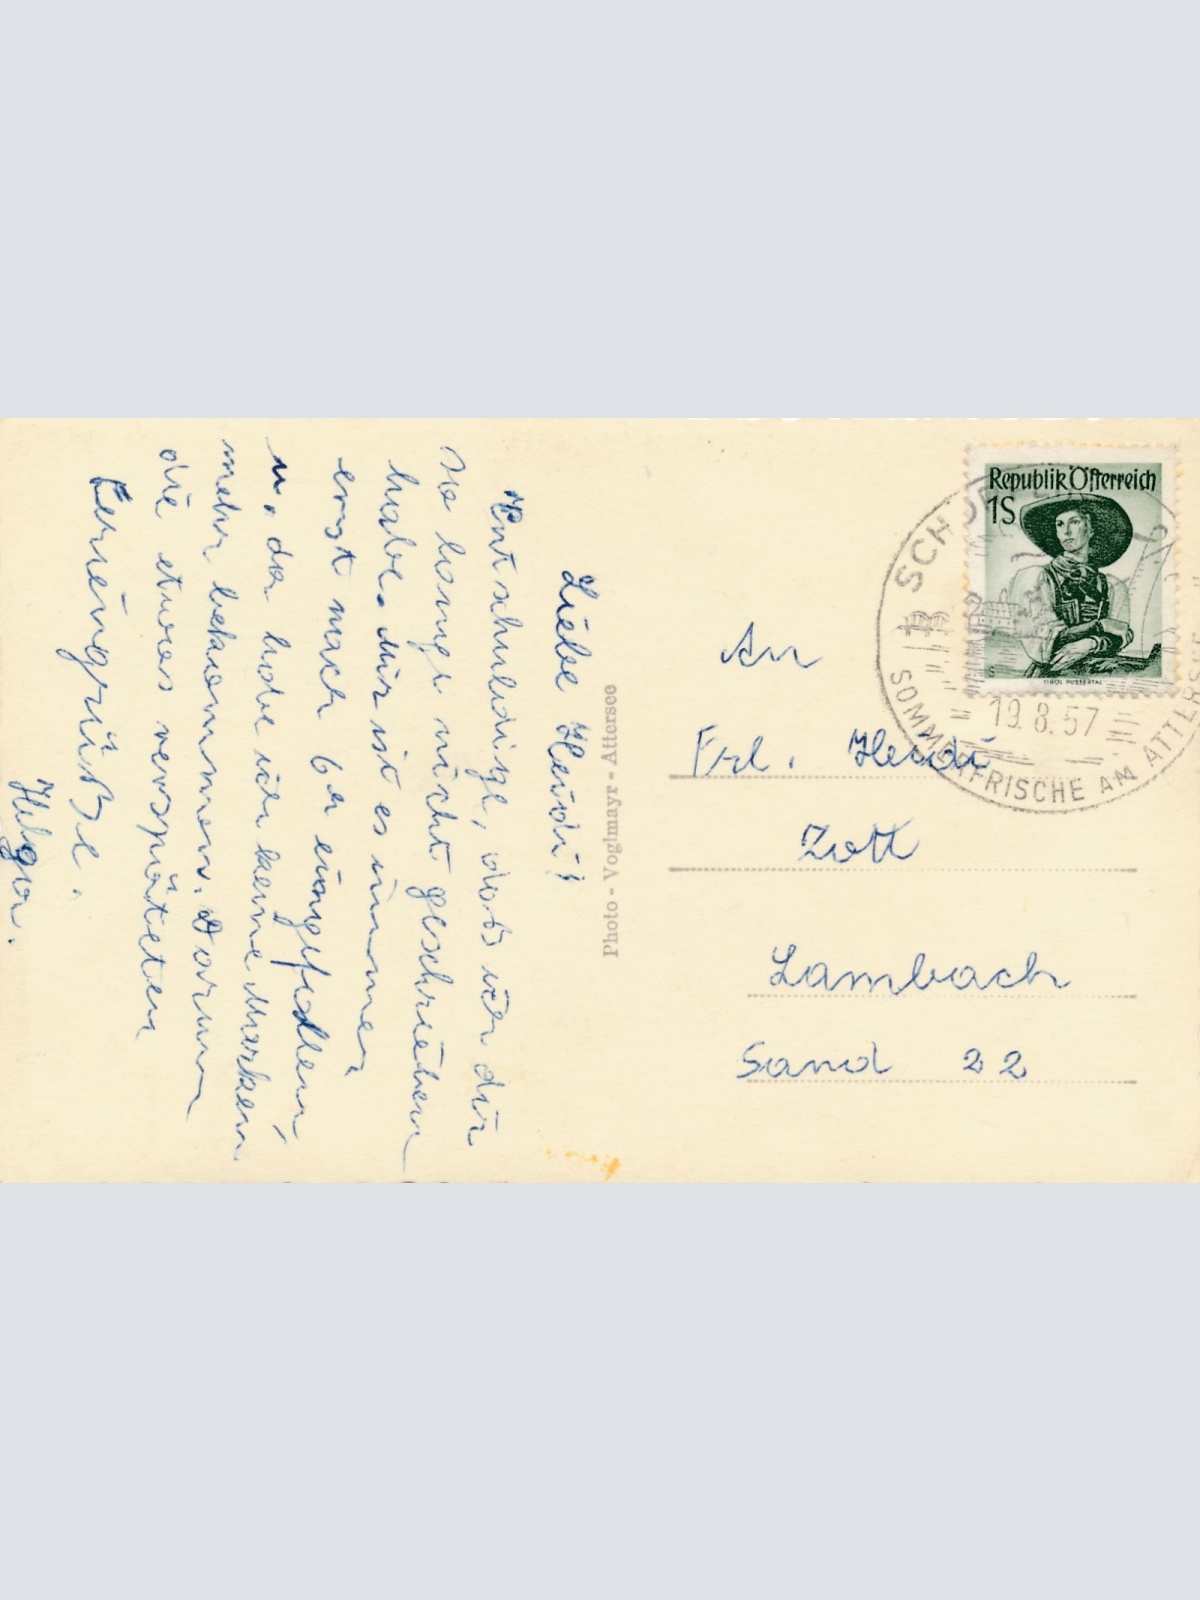 Liebe Heidi!
Entschuldige, daß ich dir
so lange nicht geschrieben
habe. Mir ist es immer
erst nach 6h eingefallen
u. da habe ich keine Marken
mehr bekommen. Darum
die etwas verspäteten
Feriengrüße.
Helga.
Photo - Voglmayr - Attersee
Republik Österreich
1S
TIROL PUSTERTAL
19.8.57
SOMMERFRISCHE AM ATTERSEE
An
Frl. Heidi
Zott
Lambach
Sand 22